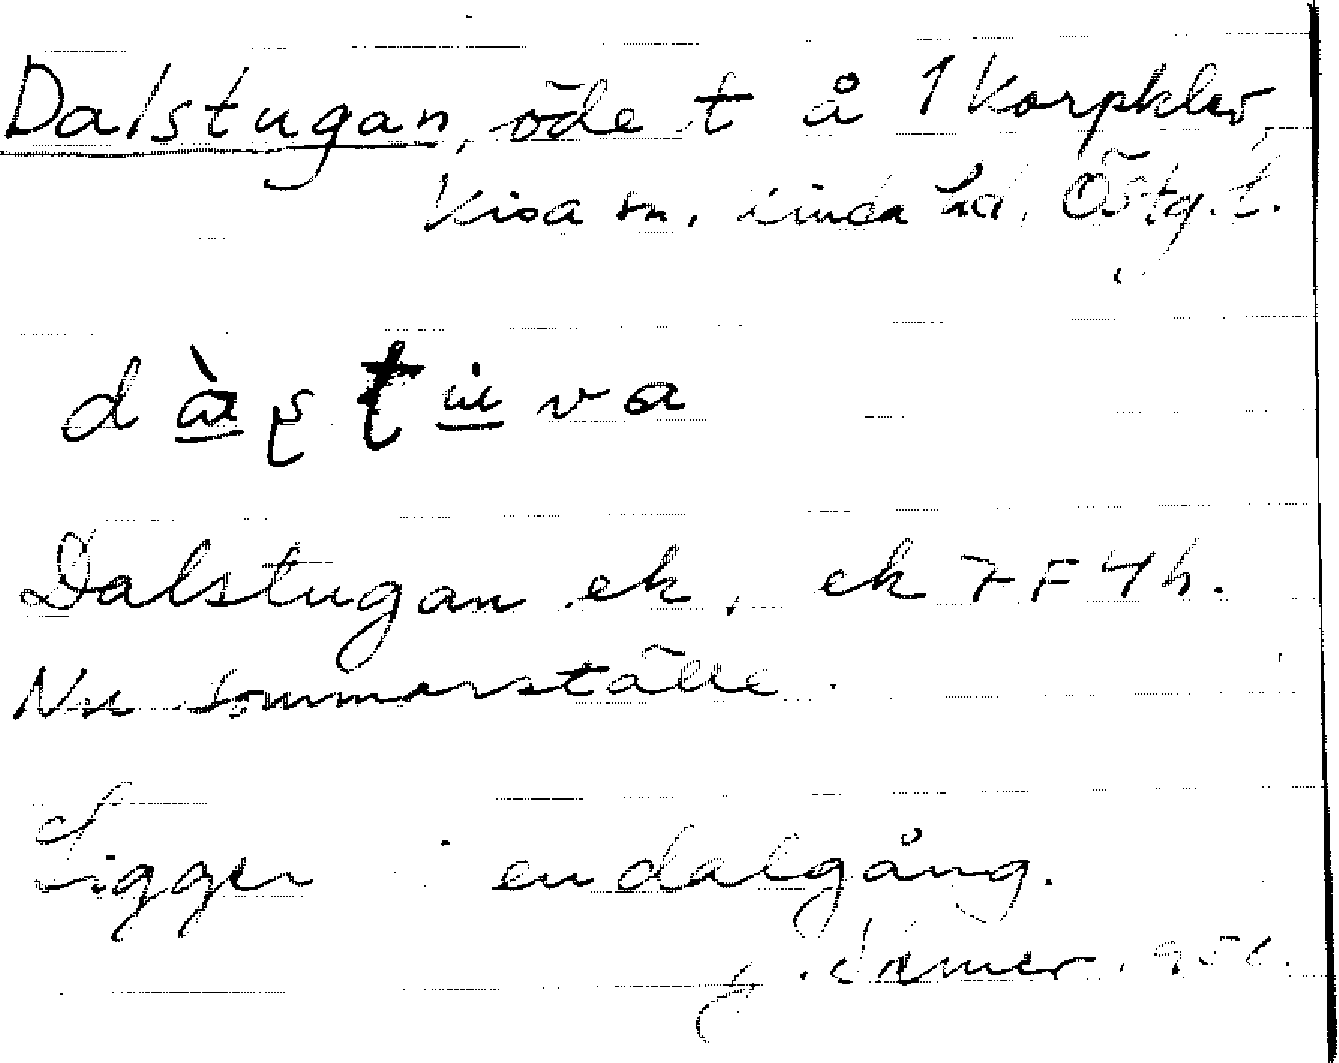 Dalstugan, öde t å 1 Korpklev,
Kisa sn. Kinda hd. Östg. l.
Dalstugan ek. ek 7F4h.
Nu sommarställe.
Ligger i en dalgång.